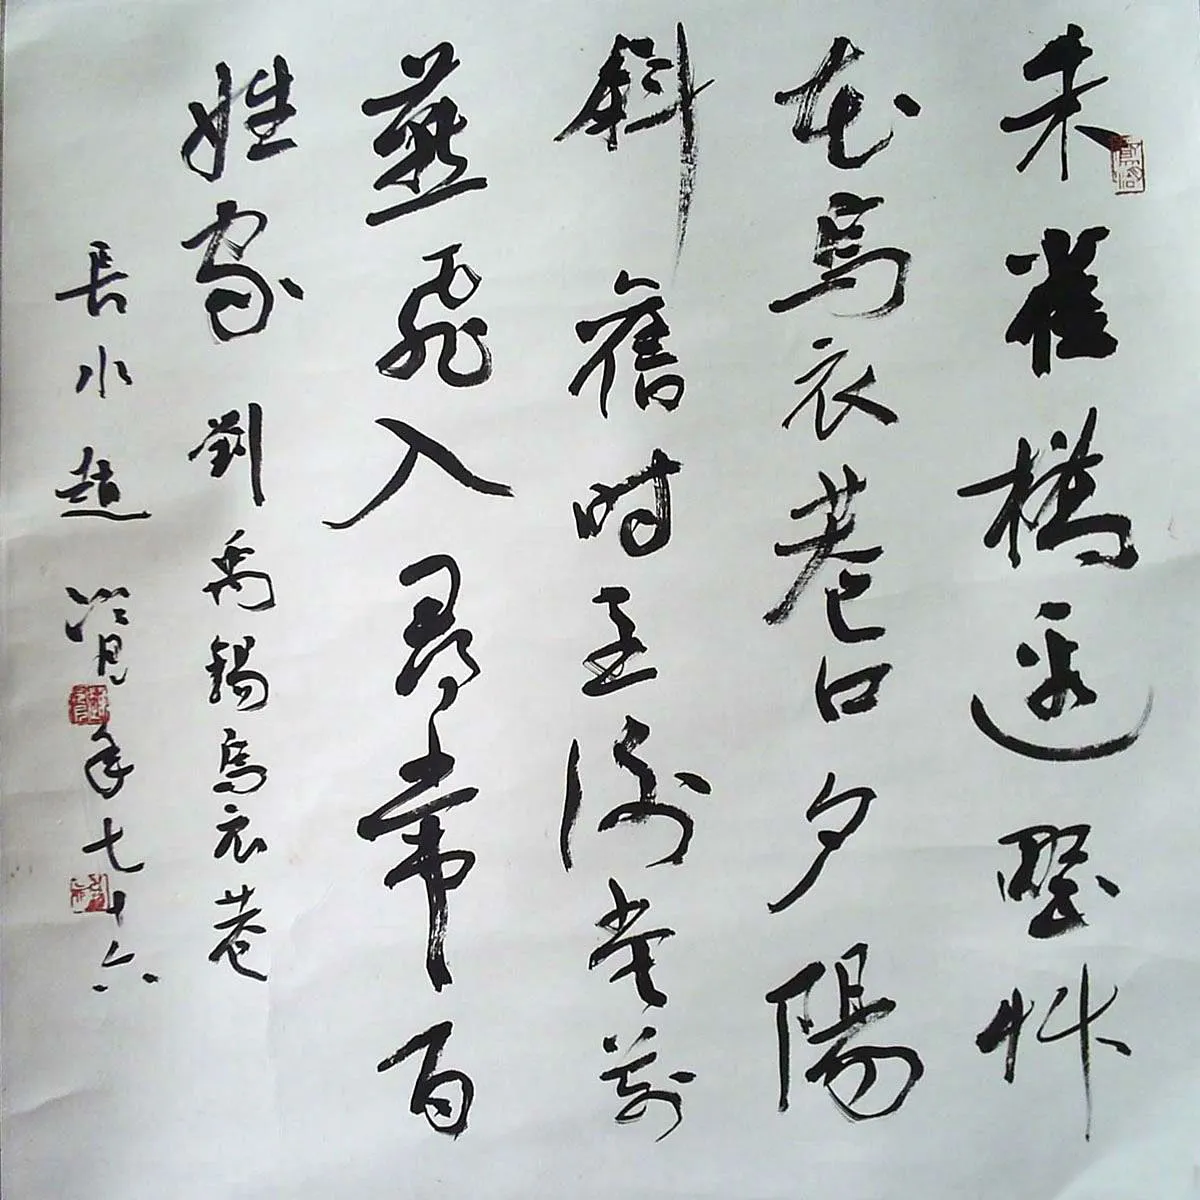 朱雀橋邊野艸
花烏衣巷口夕陽
斜舊時王謝堂前
燕飛入尋常百
姓家 劉禹錫烏衣巷
長水趙年七十六